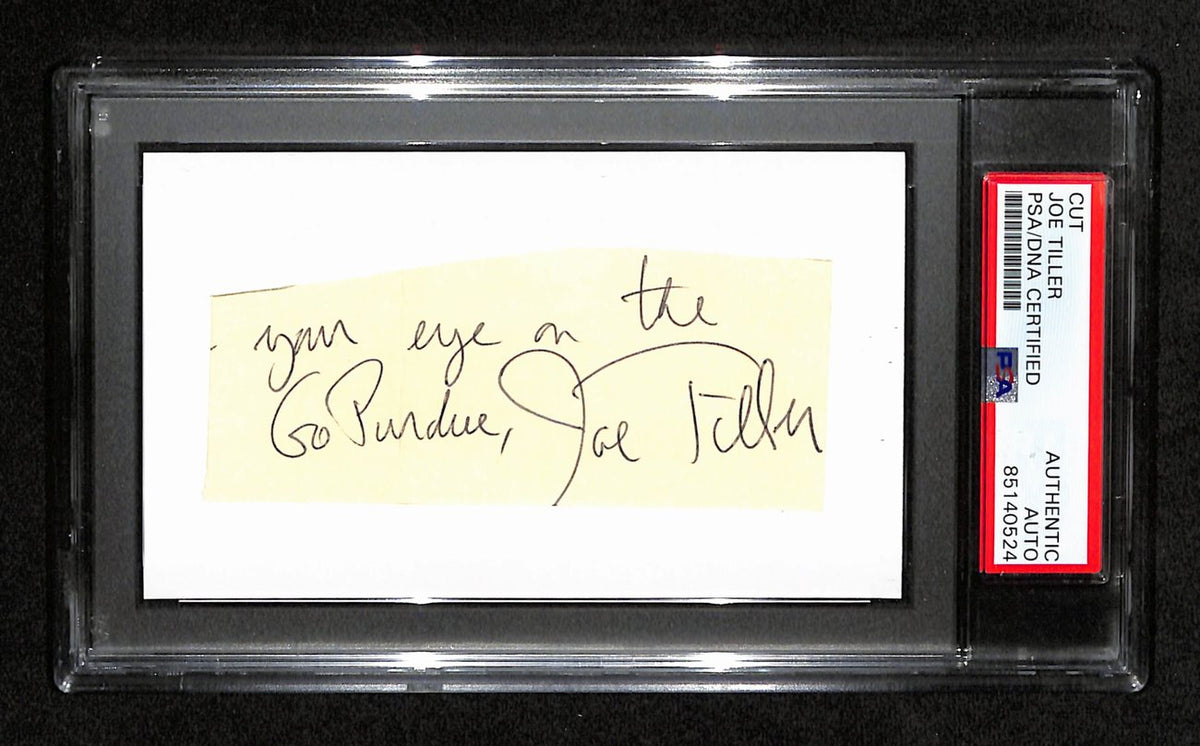 - your eye on the
Go Purdue, Joe Tiller
CUT
JOE TILLER
PSA/DNA CERTIFIED
PSA
AUTHENTIC
AUTO
85140524